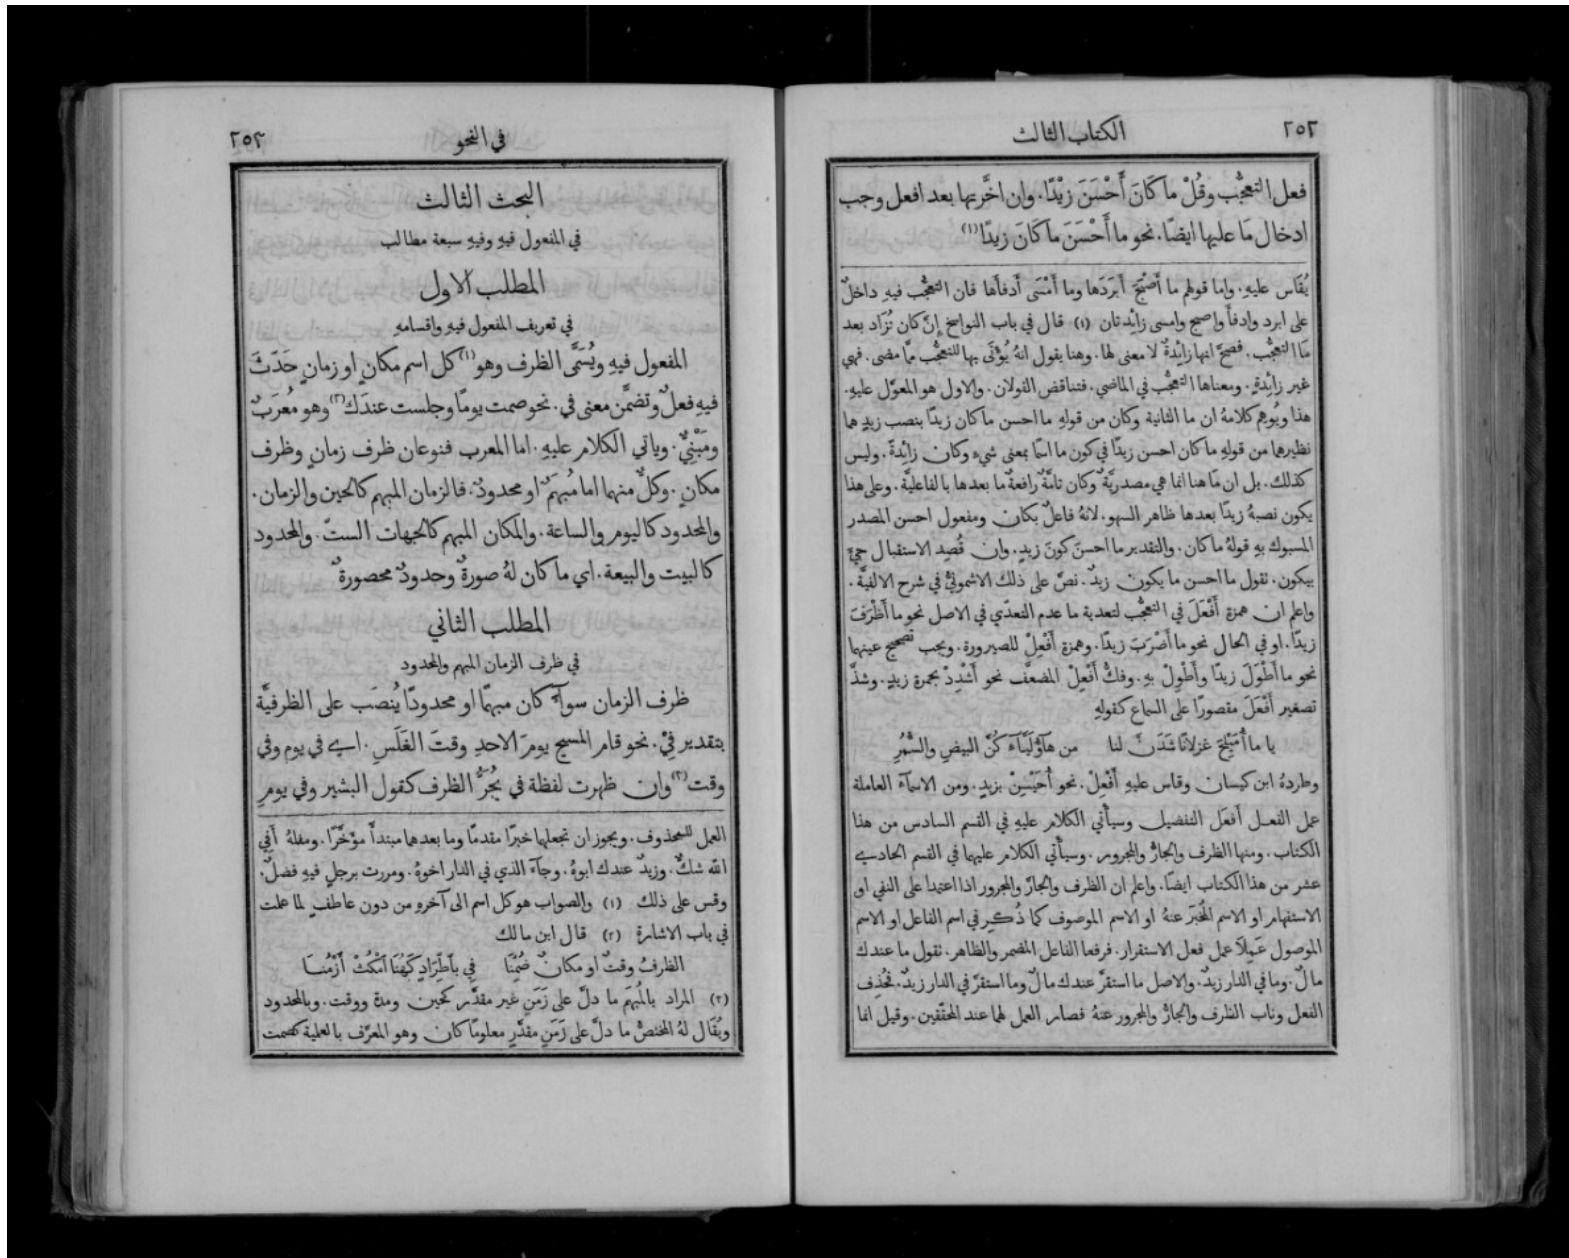 ٢٥٢
الكتاب الثالث
فعل التعجُّب وقُلْ ما كَانَ أَحْسَنَ زَيْدًا. وان اخَّرتها بعد افعل وجب
ادخال مَا عليها ايضًا. نحو ما أَحْسَنَ ما كَانَ زيدًا (١)
يُقَاس عليهِ. واما قولهم ما أَصْبَحَ أَبرَدَها وما أَمْسَى أَدفأَها فان التعجُّب فيهِ داخلٌ
على ابرد وادفأَ واصبح وامسى زائدتان (١) قال في باب النواسخ إنَّ كان تُزَاد بعد
مَا التعجُّب. فصحَّ انها زائِدةٌ لا معنى لها. وهنا يقول انهُ يُؤْتَى بها للتعجُّب ممَّا مضى. فهي
غير زائِدةٍ. ومعناها التعجُّب في الماضي. فتناقض القولان. والاول هو المعوَّل عليهِ.
هذا ويُوهِم كلامهُ ان ما الثانية وكان من قولهِ ما احسن ما كان زيدًا بنصب زيدٍ هما
نظيرهما من قولهِ ما كان احسن زيدًا في كون ما اسمًا بمعنى شيءٍ وكان زائِدةً. وليس
كذلك. بل ان مَا هنا انما هي مصدريَّةٌ وكان تامَّةٌ رافعةٌ ما بعدها بالفاعليَّة. وعلى هذا
يكون نصبهُ زيدًا بعدها ظاهر السهو. لانهُ فاعلٌ بكان ومفعول احسن المصدر
المسبوك بهِ قولهُ ما كان. والتقدير ما احسن كونَ زيدٍ. وان قُصِد الاستقبال جيءَ
بيكون. تقول ما احسن ما يكون زيدٌ. نصَّ على ذلك الاشمونيُّ في شرح الالفيَّة.
واعلم ان همزة أَفْعَلَ في التعجُّب لتعدية ما عدم التعدّي في الاصل نحو ما أَظْرَفَ
زيدًا. او في الحال نحو ما أَضْرَبَ زيدًا. وهمزة أَفْعِلْ للصيرورة. ويجب تصحيح عينهما
نحو ما أَطْوَلَ زيدًا وأَطْوِلْ بهِ. وفكُّ أَفْعِلْ المضعَّف نحو أَشْدِدْ بحمرة زيدٍ. وشذَّ
تصغير أَفْعَلَ مقصورًا على السماع كقولهِ
يا ما أُمَيْلِحَ غزلانًا شَدَنَّ لنا من هَاؤُلَيَّائِكُنَّ البيضِ والسَّمُرِ
وطردهُ ابن كيسان وقاس عليهِ أَفْعِلْ. نحو أُحَيْسِنْ بزيدٍ. ومن الاسمآءِ العاملة
عمل الفعل أَفعَل التفضيل وسيأتي الكلام عليهِ في القسم السادس من هذا
الكتاب. ومنها الظرف والجارُّ والمجرور. وسيأتي الكلام عليهما في القسم الحادي
عشر من هذا الكتاب ايضًا. واعلم ان الظرف والجارَّ والمجرور اذا اعتمدا على النفي او
الاستفهام او الاسم المُخبَر عنهُ او الاسم الموصوف كما ذُكِر في اسم الفاعل او الاسم
الموصول عَمِلَا عمل فعل الاستقرار. فرفعا الفاعل المضمر والظاهر. تقول ما عندك
مالٌ. وما في الدار زيدٌ. والاصل ما استقرَّ عندك مالٌ وما استقرَّ في الدار زيدٌ. فحُذِف
الفعل وناب الظرف والجارُّ والمجرور عنهُ فصار العمل لهما عند المحقّقين. وقيل انما
في النحو
٢٥٣
البحث الثالث
في المفعول فيهِ وفيهِ سبعة مطالب
المطلب الاول
في تعريف المفعول فيهِ واقسامهِ
المفعول فيهِ ويُسَمَّى الظرف وهو (١) كل اسم مكانٍ او زمانٍ حَدَثَ
فيهِ فعلٌ وتضمَّن معنى في. نحو صمت يومًا وجلست عندَك (٢) وهو مُعرَبٌ
ومَبْنِيٌّ. وياتي الكلام عليهِ. اما المعرب فنوعان ظرف زمانٍ وظرف
مكانٍ. وكلٌّ منهما اما مُبهَمٌ او محدودٌ. فالزمان المبهم كالحين والزمان.
والمحدود كاليوم والساعة. والمكان المبهم كالجهات الستّ. والمحدود
كالبيت والبيعة. اي ما كان لهُ صورةٌ وحدودٌ محصورةٌ
المطلب الثاني
في ظرف الزمان المبهم والمحدود
ظرف الزمان سوآءٌ كان مبهمًا او محدودًا يُنصَب على الظرفيَّة
بتقدير فِيْ. نحو قام المسيح يومَ الاحدِ وقتَ الغَلَسِ. اي في يومِ وفي
وقت (٣) وان ظهرت لفظة في يُجَرُّ الظرف كقول البشير وفي يومِ
العمل للمحذوف. ويجوز ان تجعلهما خبرًا مقدمًا وما بعدهما مبتدأً مؤَخَّرًا. ومثلهُ أَفِي
اللّه شكٌّ. وزيدٌ عندك ابوهُ. وجآءَ الذي في الدار اخوهُ. ومررت برجلٍ فيهِ فضلٌ.
وقس على ذلك (١) والصواب هو كل اسم الى آخرهِ من دون عاطفٍ لما علمت
في باب الاشارة (٢) قال ابن مالك
الظرفُ وقتٌ او مكانٌ ضُمِّنَا فِي بِاَطِّرَادٍ كَهُنَا اَمْكُثْ أَزْمُنَا
(٣) المراد بالمُبهَم ما دلَّ على زَمَنٍ غير مقدَّر كحين ومدة ووقت. وبالمحدود
ويُقَال لهُ المختصُّ ما دلَّ على زَمَنٍ مقدَّرٍ معلومًا كان وهو المعرَّف بالعلمية كصمت